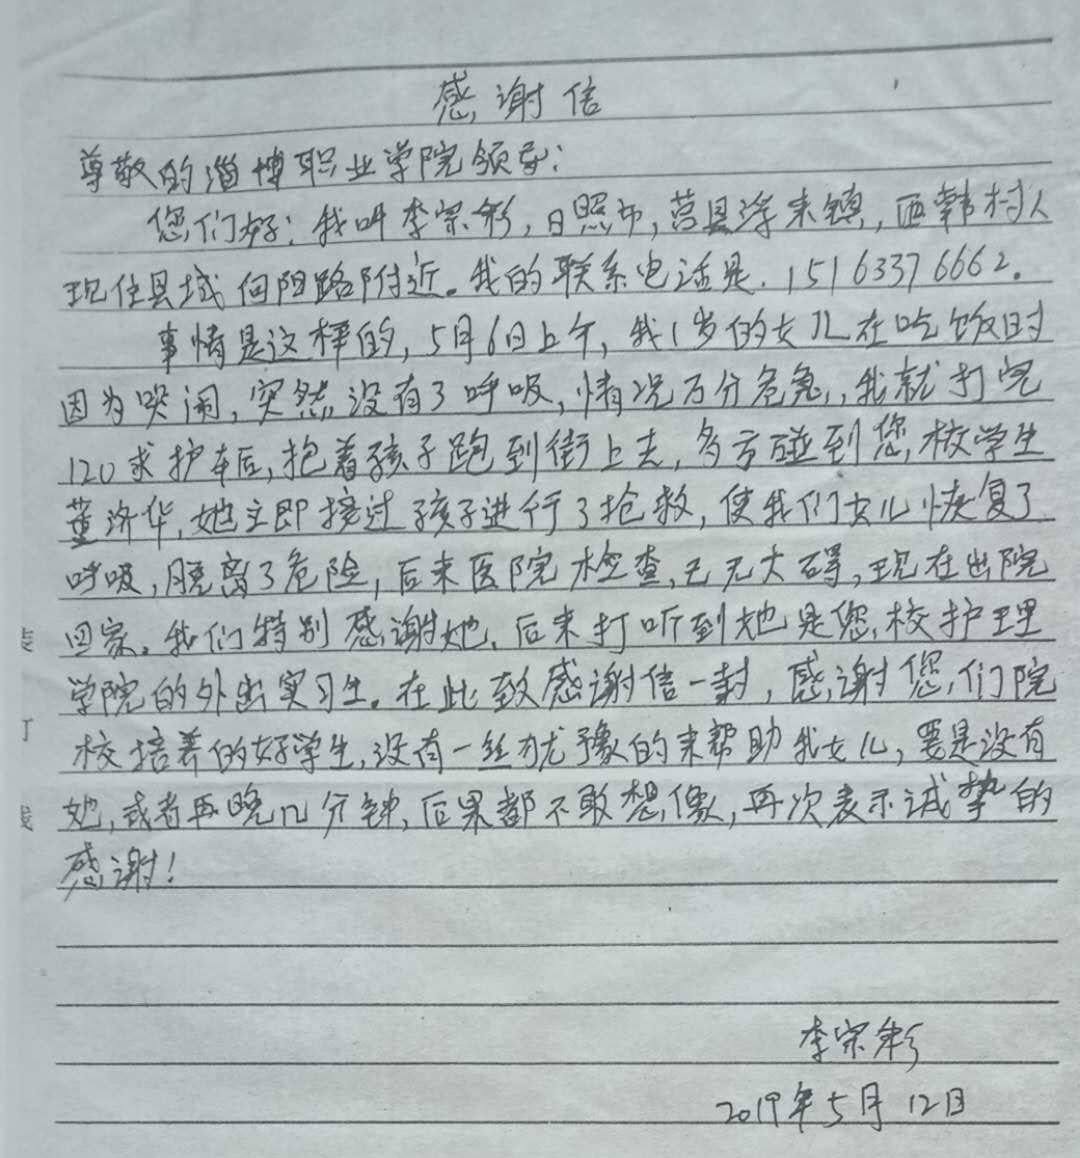 感谢信
尊敬的淄博职业学院领导：
您们好：我叫李宗彩，日照市，莒县浮来镇，西韩村人
现住县城向阳路附近。我的联系电话是．15163376662。
事情是这样的，5月6日上午，我1岁的女儿在吃饭时
因为哭闹，突然没有了呼吸，情况万分危急，我就打完
120求护车后，抱着孩子跑到街上去，多亏碰到您校学生
董济华，她立即接过孩子进行了抢救，使我们女儿恢复了
呼吸，脱离了危险，后来医院检查，已无大碍，现在出院
回家。我们特别感谢她．后来打听到她是您校护理
学院的外出实习生。在此致感谢信一封，感谢您们院
校培养的好学生，没有一丝犹豫的来帮助我女儿，要是没有
她，或者再晚几分钟，后果都不敢想像，再次表示诚挚的
感谢！
李宗彩
2019年5月12日
装
订
线